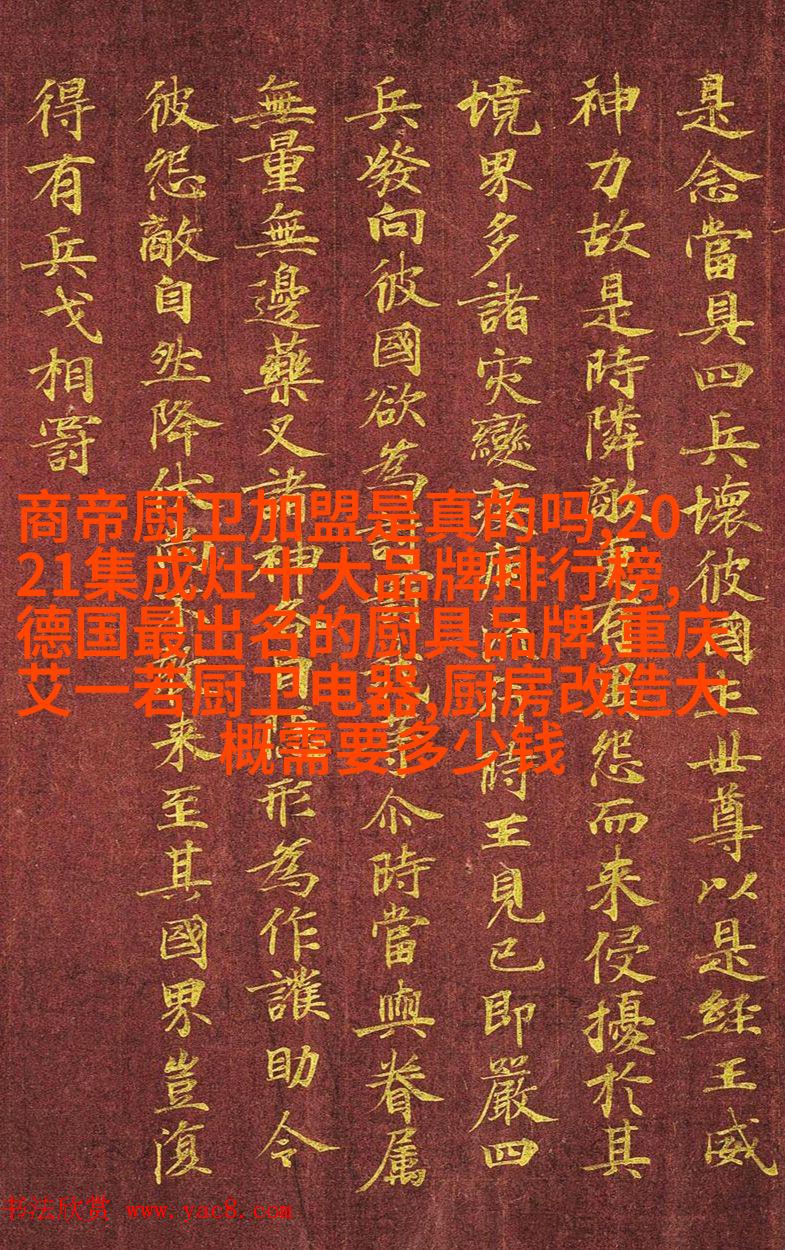 是念當具四兵壞彼國土世尊以是經王威
神力故是時隣敵更有異怨而来侵擾於其
境界多諸灾變病流行時王見已即嚴四
兵發向彼國欲為討罰我等尒時當與眷属
無量無邊藥叉諸神各自隱形為作護助令
彼怨敵自然降伏尚不敢来至其國界豈復
得有兵戈相罸
商帝厨卫加盟是真的吗,20
21集成灶十大品牌排行榜,
德国最出名的厨具品牌,重庆
艾一若厨卫电器,厨房改造大
概需要多少钱
书法欣赏 www.yac8.com